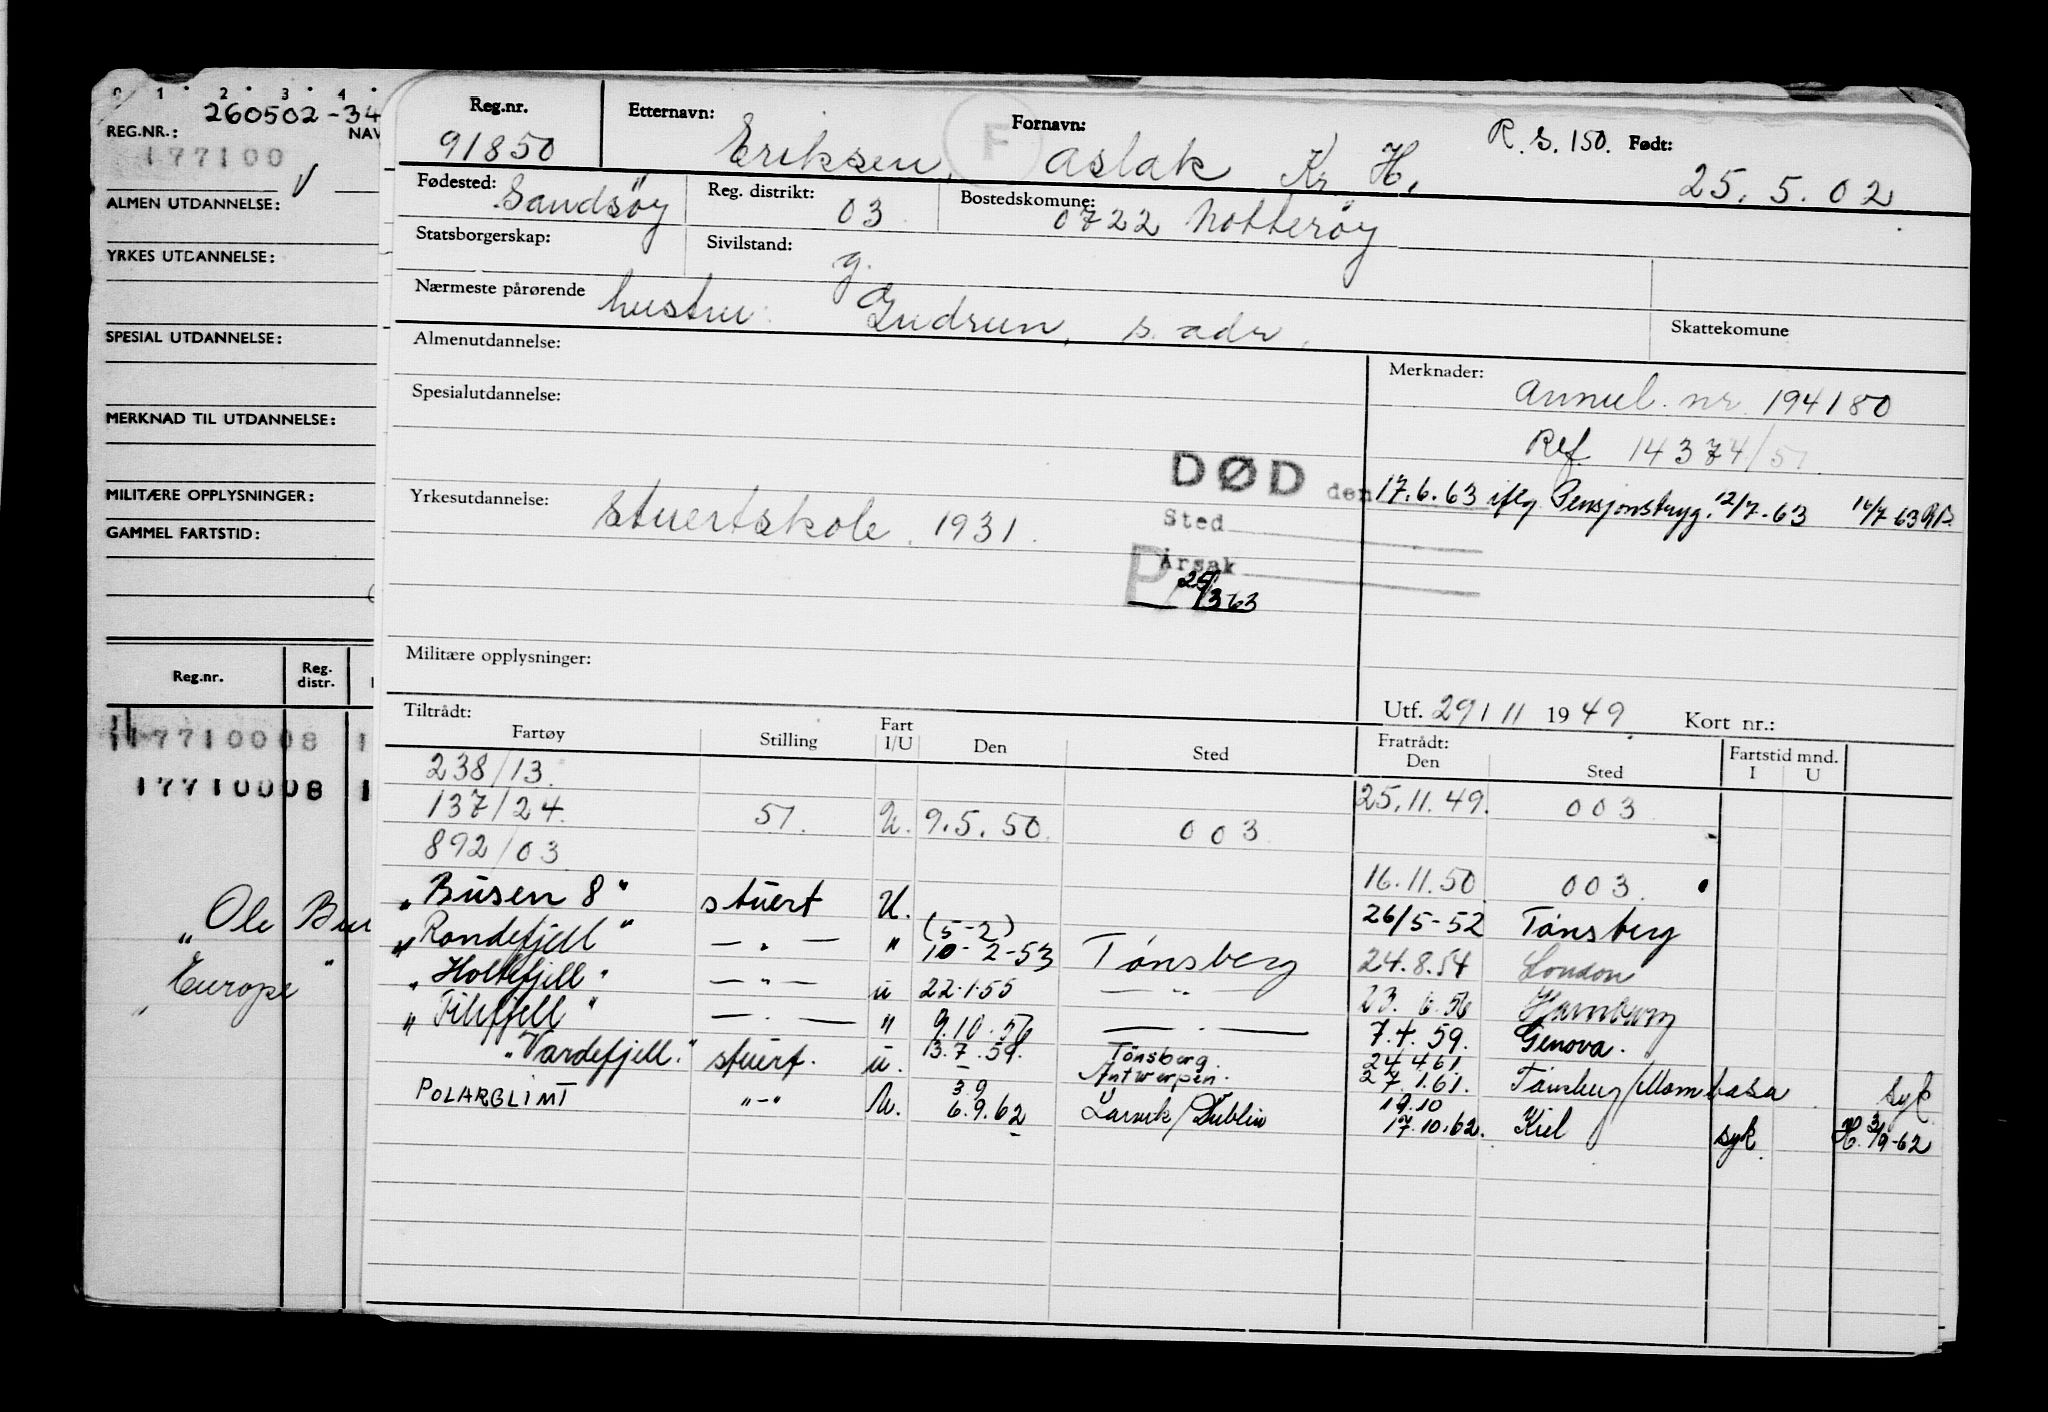 0 1 · 2 · 3 · 4 ·
260502-34
REG.NR.: NAV
177100
ALMEN UTDANNELSE:
YRKES UTDANNELSE:
SPESIAL UTDANNELSE:
MERKNAD TIL UTDANNELSE:
MILITÆRE OPPLYSNINGER:
GAMMEL FARTSTID:
Reg.nr. Reg. distr.
17710008 1
17710008 1
"Ole Bu
"Europe"
Reg.nr. Etternavn: F Fornavn: R.S. 150. Født:
91850 Eriksen, Aslak Kr H. 25.5.02
Fødested: Sandsöy Reg. distrikt: 03 Bostedskomune: 0722 Nötteröy
Statsborgerskap: Sivilstand: g.
Nærmeste pårørende hustru: Gudrun, s. adr. Skattekomune
Almenutdannelse: Merknader: Annul. nr. 194180
Spesialutdannelse: Ref. 14374/51
DØD den 17.6.63 iflg Pensjonstryg. 12/7-63 16/7 63
Yrkesutdannelse: Stuertskole 1931. Sted
Årsak
25/3 63
Militære opplysninger:
Tiltrådt: Utf. 29/11 1949. Kort nr.:
Fartøy Stilling Fart I/U Den Sted Fratrådt: Den Sted Fartstid mnd. I U
238/13. 25.11.49. 003
137/24. 51. U. 9.5.50. 003
892/03 16.11.50 003.
"Busen 8" stuert U. 26/5-52 Tønsberg
"Rondefjell" — " — " (5-2) 10-2-53 Tønsberg 24.8.54 London
"Holtefjell" — " — u 22.1.55 — " 23.6.56 Hamburg
"Filefjell" — " — " 9.10.56 — " — 7.4.59. Genova.
"Vardefjell." stuert. u. 13.7.59. Tönsberg Antwerpen. 24.4.61 27.1.61. Tönsberg/Mombasa syk
POLARGLIMT "-" U. 3.9 6.9.62 Larvik/Dublin 19.10 17.10.62. Kiel syk H. 3/9-62